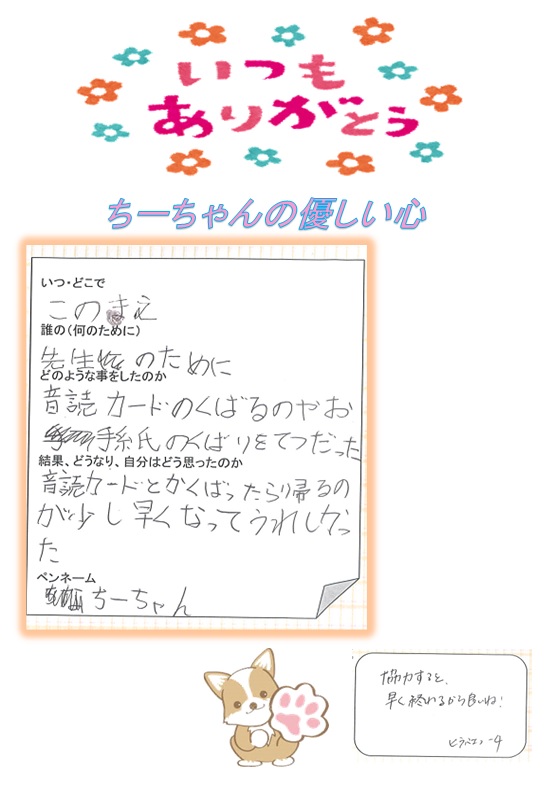 いつも
ありがとう
ちーちゃんの優しい心
いつ・どこで
このまえ
誰の(何のために)
先生のために
どのような事をしたのか
音読カードのくばるのやお
手紙氏のくばりをてつだった
結果、どうなり、自分はどう思ったのか
音読カードとかくばったらり帰るの
が少し早くなってうれしかっ
た
ペンネーム
ちーちゃん
協力すると、
早く終わるから良いね!